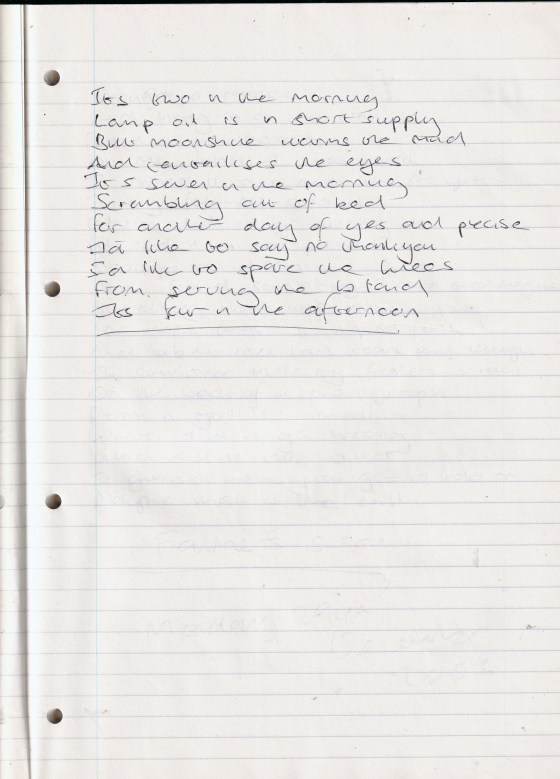 Its two in the morning
Lamp oil is in short supply
But moonshine warms the mind
And the eyes
It's seven in the morning
Scrambling out of bed
For another day of yes and precise
I'd like to say no thankyou
I'd like to spare the knees
From serving the
Its four in the afternoon